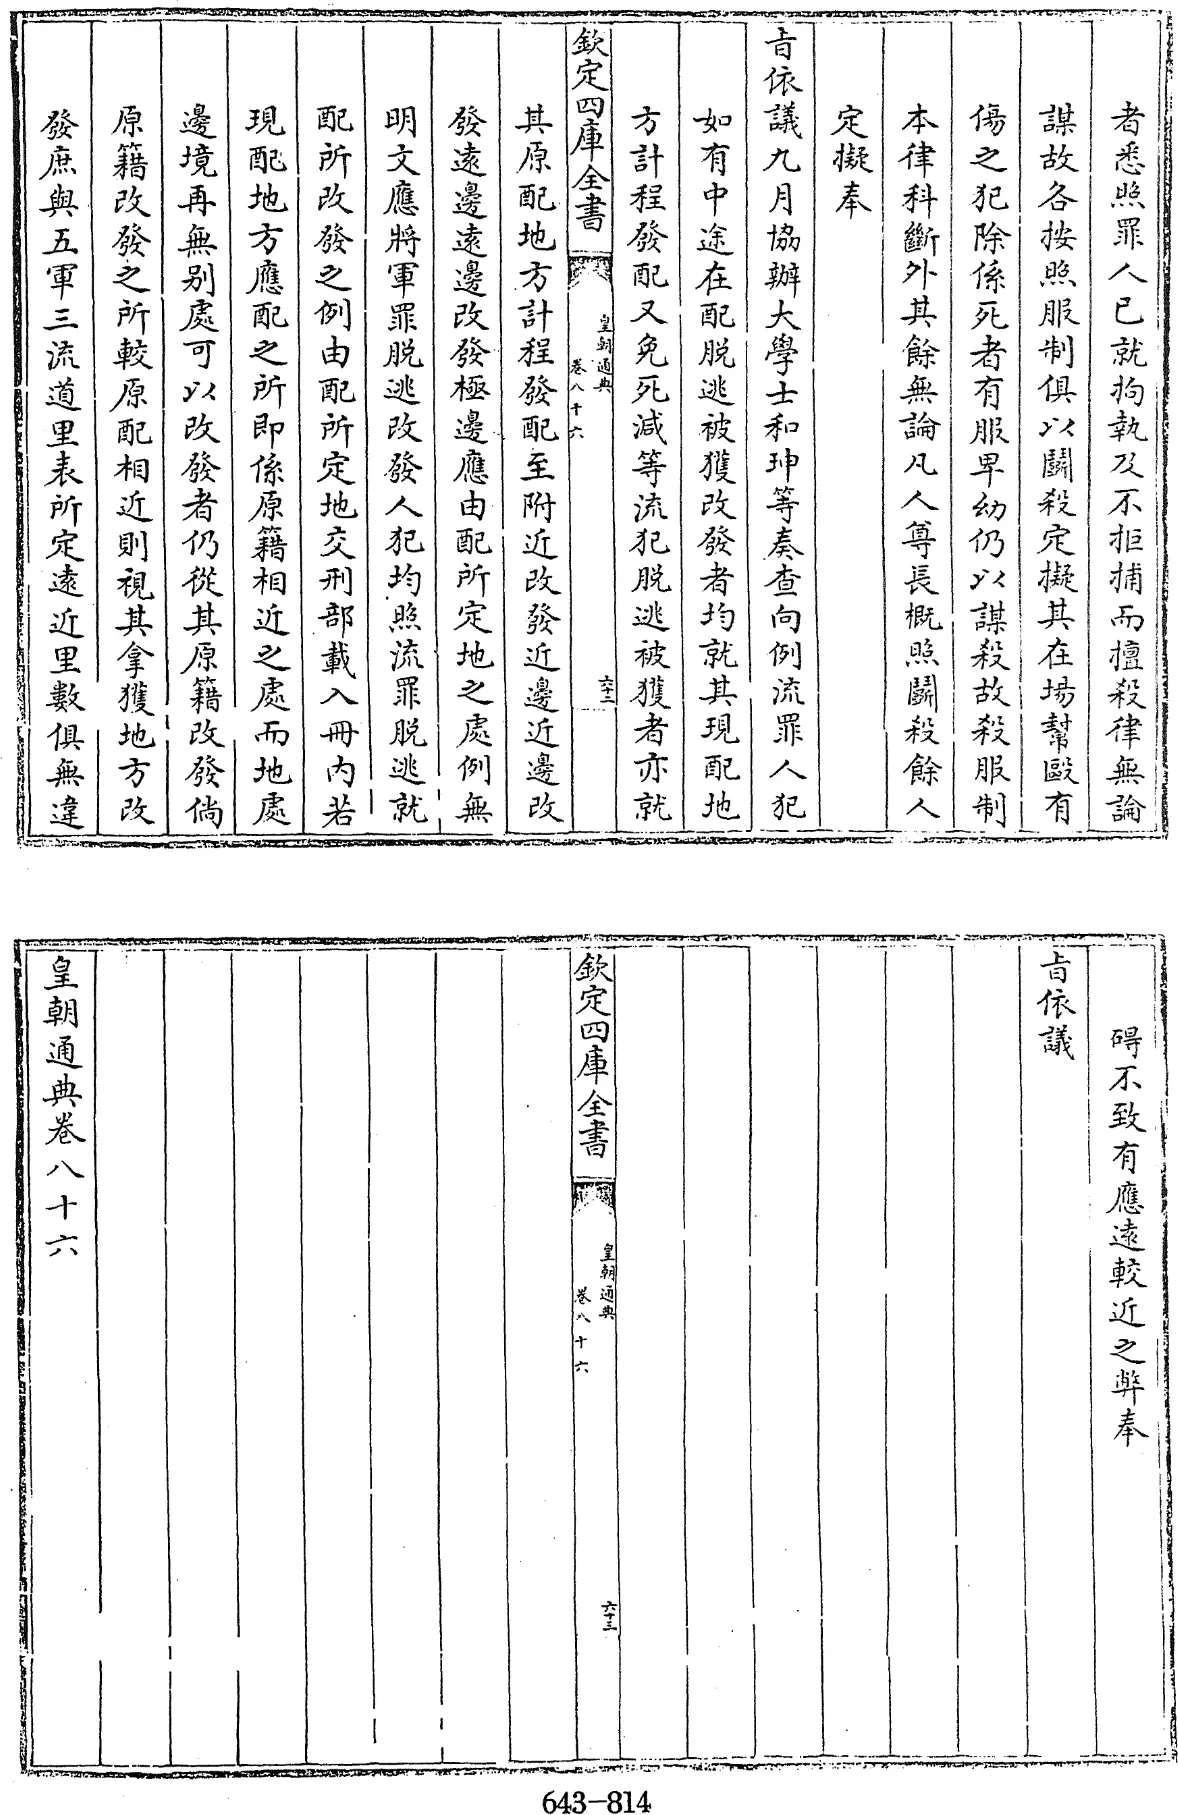 者悉照罪人已就拘執及不拒捕而擅殺律無論
謀故各按照服制俱以鬬殺定擬其在場幫毆有
傷之犯除係死者有服卑幼仍以謀殺故殺服制
本律科斷外其餘無論凡人尊長概照鬬殺餘人
定擬奉
㫖依議九月協辦大學士和珅等奏查向例流罪人犯
如有中途在配脱逃被獲改發者均就其現配地
方計程發配又免死減等流犯脱逃被獲者亦就
欽定四庫全書
皇朝通典
卷八十六
六十二
其原配地方計程發配至附近改發近邊近邊改
發遠邊遠邊改發極邊應由配所定地之處例無
明文應將軍罪脱逃改發人犯均照流罪脱逃就
配所改發之例由配所定地交刑部載入冊内若
現配地方應配之所即係原籍相近之處而地處
邊境再無别處可以改發者仍從其原籍改發倘
原籍改發之所較原配相近則視其拿獲地方改
發庶與五軍三流道里表所定遠近里數俱無違
碍不致有應遠較近之弊奉
㫖依議
欽定四庫全書
皇朝通典
卷八十六
六十三
皇朝通典卷八十六
643-814